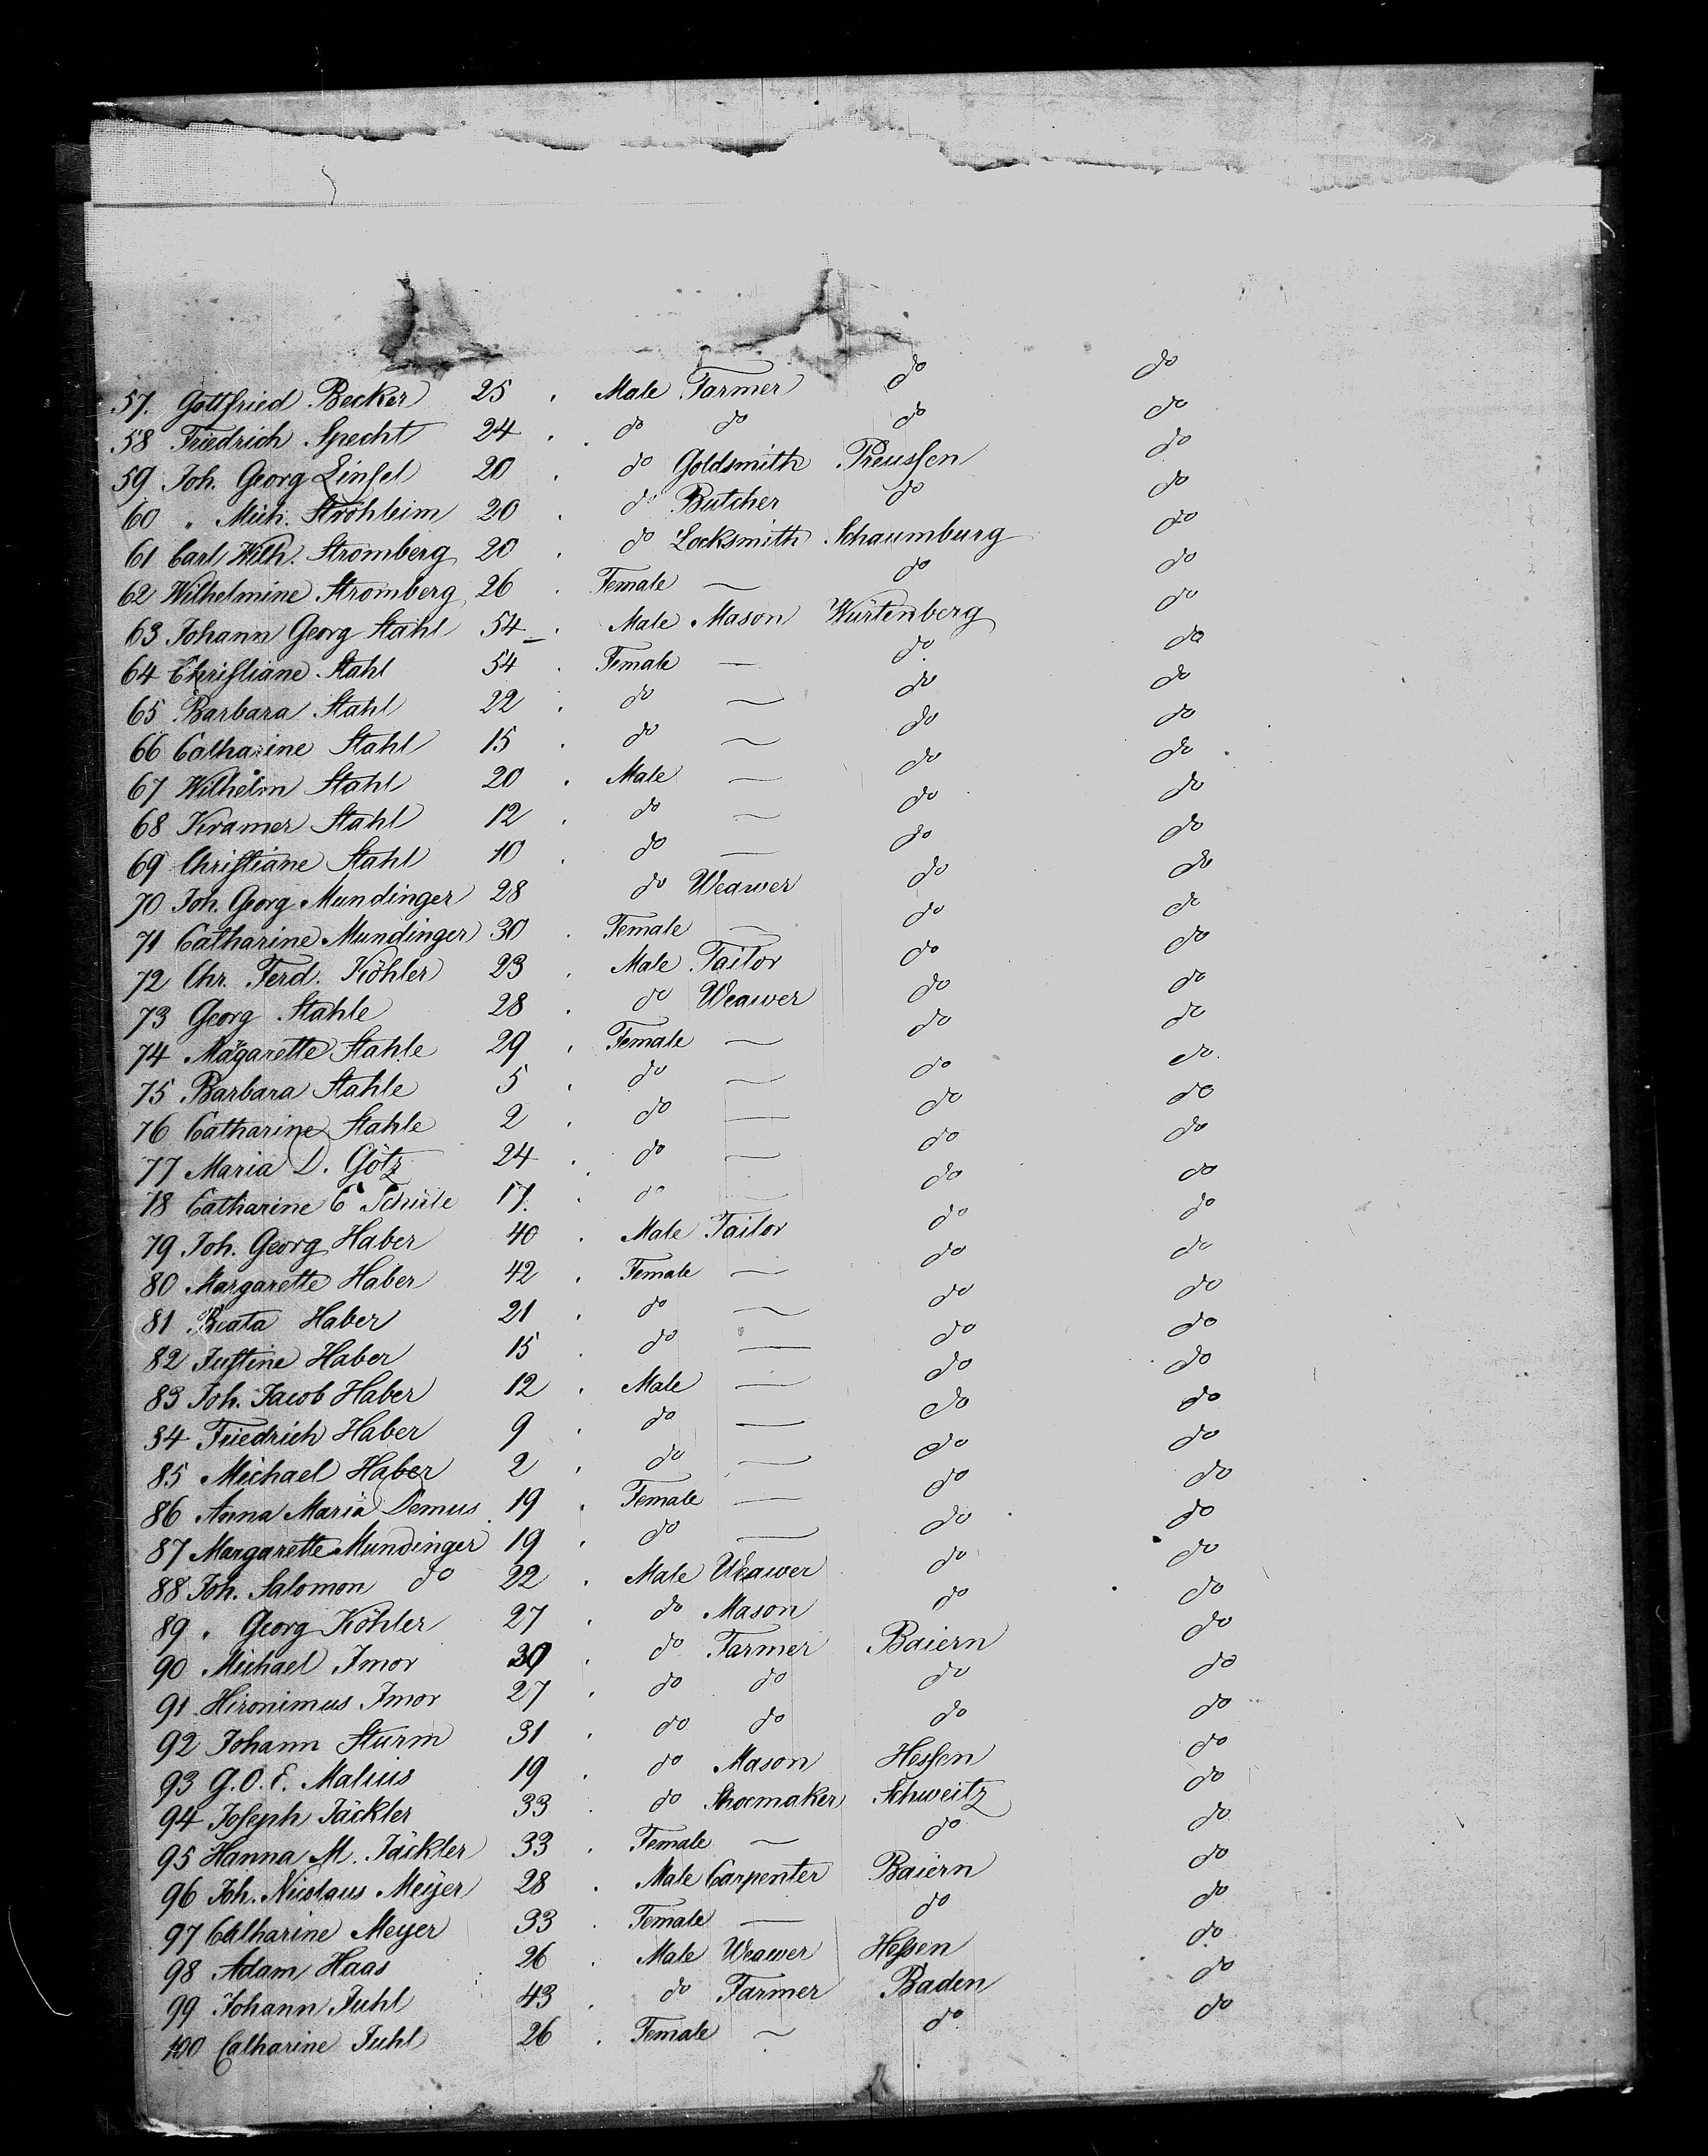 57. Gottfried Becker 25 . Male Farmer do do
58 Friedrich Specht 24 . . do do do do
59 Joh. Georg Linsel 20 . do Goldsmith Preussen do
60 " Mich. Ströhleim 20 . do Butcher do do
61 Carl Wilh. Stromberg 20 . do Locksmith Schaumburg do
62 Wilhelmine Stromberg 26 . Female — do do
63 Johann Georg Stahl 54 . Male Mason Würtenberg do
64 Christiane Stahl 54 . Female — do do
65 Barbara Stahl 22 . do — do do
66 Catharine Stahl 15 . do — do do
67 Wilhelm Stahl 20 . Male — do do
68 Kramer Stahl 12 . do — do do
69 Christiane Stahl 10 . do — do do
70 Joh. Georg Mundinger 28 do Weawer do do
71 Catharine Mundinger 30 . Female — do do
72 Chr. Ferd. Köhler 23 . Male Tailor do do
73 Georg Stahle 28 . do Weawer do do
74 Magarette Stahle 29 . Female — do do
75 Barbara Stahle 5 . do — do do
76 Catharine Stahle 2 . do — do do
77 Maria D. Götz 24 . do — do do
78 Catharine C Schüle 17. . do — do do
79 Joh. Georg Haber 40 . Male Tailor do do
80 Margarette Haber 42 . Female — do do
81 Beata Haber 21 . do — do do
82 Justine Haber 15 . do — do do
83 Joh. Jacob Haber 12 . Male — do do
84 Friedrich Haber 9 . do — do do
85 Michael Haber 2 . do — do do
86 Anna Maria Demus 19 . Female — do do
87 Margarette Mundinger 19 . do — do do
88 Joh. Salomon do 22 . Male Weawer do do
89 " Georg Köhler 27 . do Mason do do
90 Michael Imor 39 . do Farmer Baiern do
91 Hironimus Imor 27 . do do do do
92 Johann Sturm 31 . do do do do
93 G. O. E. Malius 19 . do Mason Hessen do
94 Joseph Jäckler 33 . do Shoemaker Schweitz do
95 Hanna M. Jäckler 33 . Female — do do
96 Joh. Nicolaus Meyer 28 . Male Carpenter Baiern do
97 Catharine Meyer 33 . Female — do do
98 Adam Haas 26 . Male Weawer Hessen do
99 Johann Juhl 43 . do Farmer Baden do
100 Catharine Juhl 26 . Female — do do